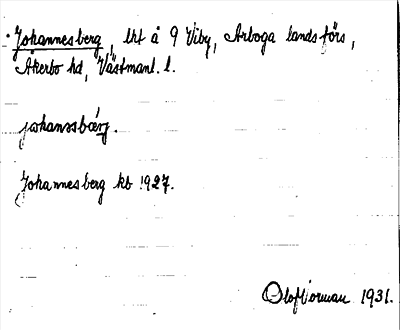 Johannesberg, lht å 9 Viby, Arboga landsförs,
Åkerbo hd, Västmanl. l.
johanssbærj.
Johannesberg kb 1927.
Olof Norman 1931.